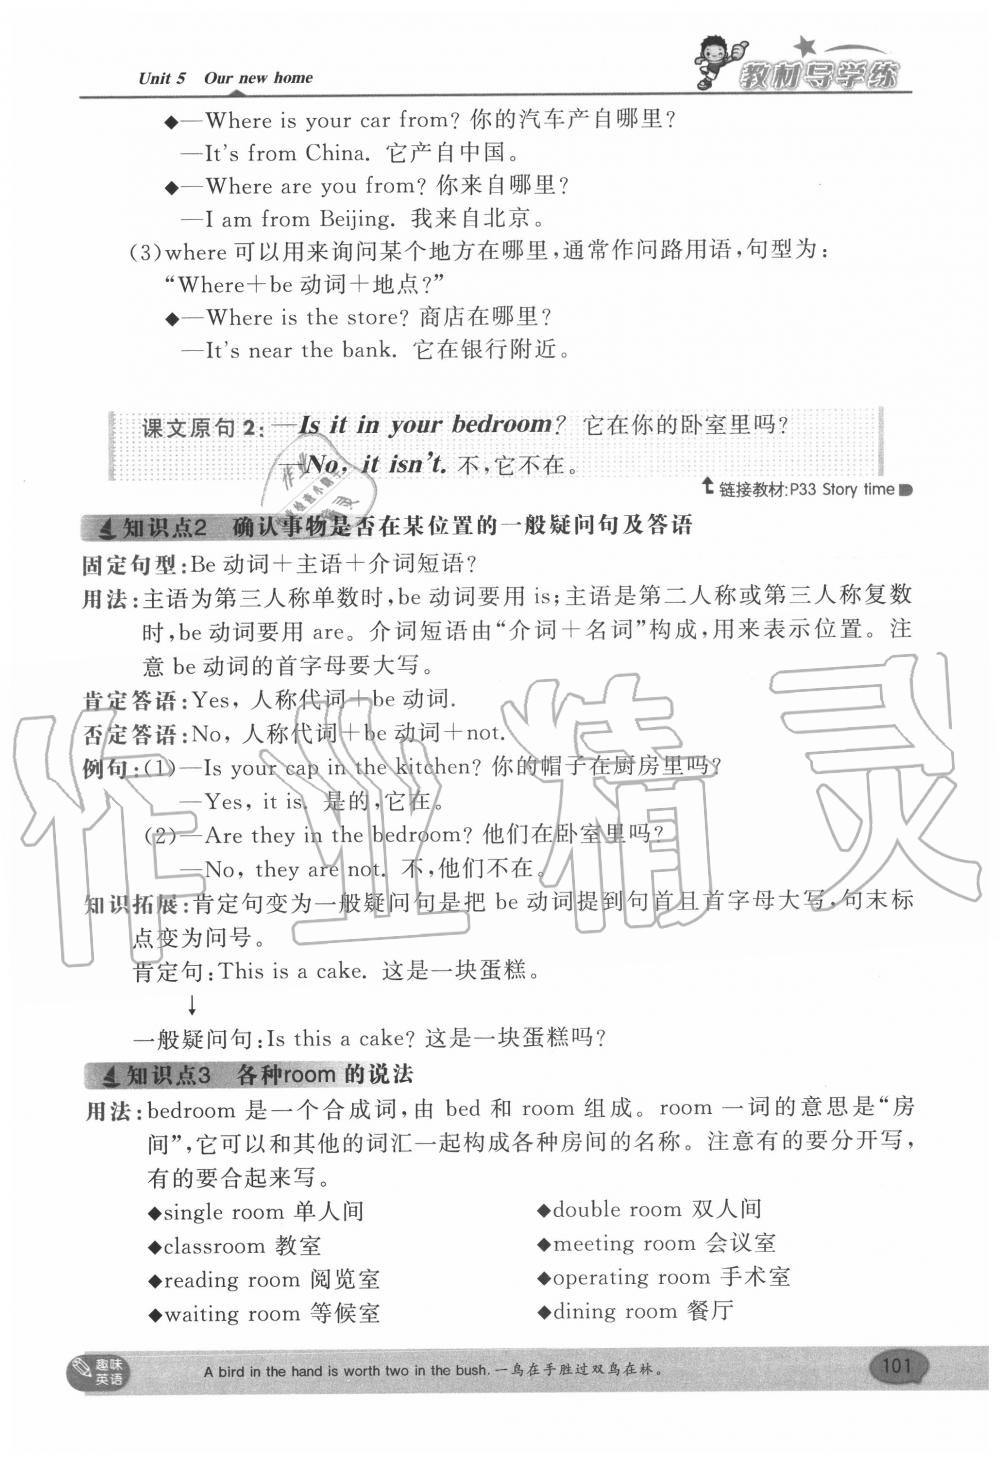 Unit 5 Our new home
教材导学练
◆—Where is your car from? 你的汽车产自哪里?
—It's from China. 它产自中国。
◆—Where are you from? 你来自哪里?
—I am from Beijing. 我来自北京。
(3)where 可以用来询问某个地方在哪里,通常作问路用语,句型为:
“Where+be 动词+地点?”
◆—Where is the store? 商店在哪里?
—It's near the bank. 它在银行附近。
课文原句2:—Is it in your bedroom? 它在你的卧室里吗?
—No, it isn't. 不,它不在。
链接教材:P33 Story time
知识点2 确认事物是否在某位置的一般疑问句及答语
固定句型:Be 动词+主语+介词短语?
用法:主语为第三人称单数时,be 动词要用 is;主语是第二人称或第三人称复数
时,be 动词要用 are。介词短语由“介词+名词”构成,用来表示位置。注
意 be 动词的首字母要大写。
肯定答语:Yes, 人称代词+be 动词.
否定答语:No, 人称代词+be 动词+not.
例句:(1)—Is your cap in the kitchen? 你的帽子在厨房里吗?
—Yes, it is. 是的,它在。
(2)—Are they in the bedroom? 他们在卧室里吗?
—No, they are not. 不,他们不在。
知识拓展:肯定句变为一般疑问句是把 be 动词提到句首且首字母大写,句末标
点变为问号。
肯定句:This is a cake. 这是一块蛋糕。
↓
一般疑问句:Is this a cake? 这是一块蛋糕吗?
知识点3 各种room 的说法
用法:bedroom 是一个合成词,由 bed 和 room 组成。room 一词的意思是“房
间”,它可以和其他的词汇一起构成各种房间的名称。注意有的要分开写,
有的要合起来写。
◆single room 单人间 ◆double room 双人间
◆classroom 教室 ◆meeting room 会议室
◆reading room 阅览室 ◆operating room 手术室
◆waiting room 等候室 ◆dining room 餐厅
趣味
英语
A bird in the hand is worth two in the bush. 一鸟在手胜过双鸟在林。
101
作业精灵